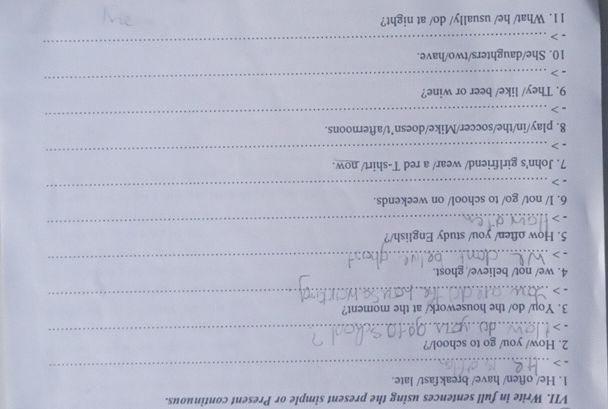 VII. Write in full sentences using the present simple or Present continuous.
1. He/ often/ have/ breakfast/ late.
-> He
2. How/ you/ go to school/?
-> How do you go to school?
3. You/ do/ the housework/ at the moment?
-> the
4. we/ not/ believe/ ghost.
-> We don't ghost
5. How often/ you/ study English/?
-> How
6. I/ not/ go/ to school/ on weekends.
->
7. John's girlfriend/ wear/ a red T-shirt/ now.
->
8. play/in/the/soccer/Mike/doesn't/afternoons.
->
9. They/ like/ beer or wine?
->
10. She/daughters/two/have.
->
11. What/ he/ usually/ do/ at night?